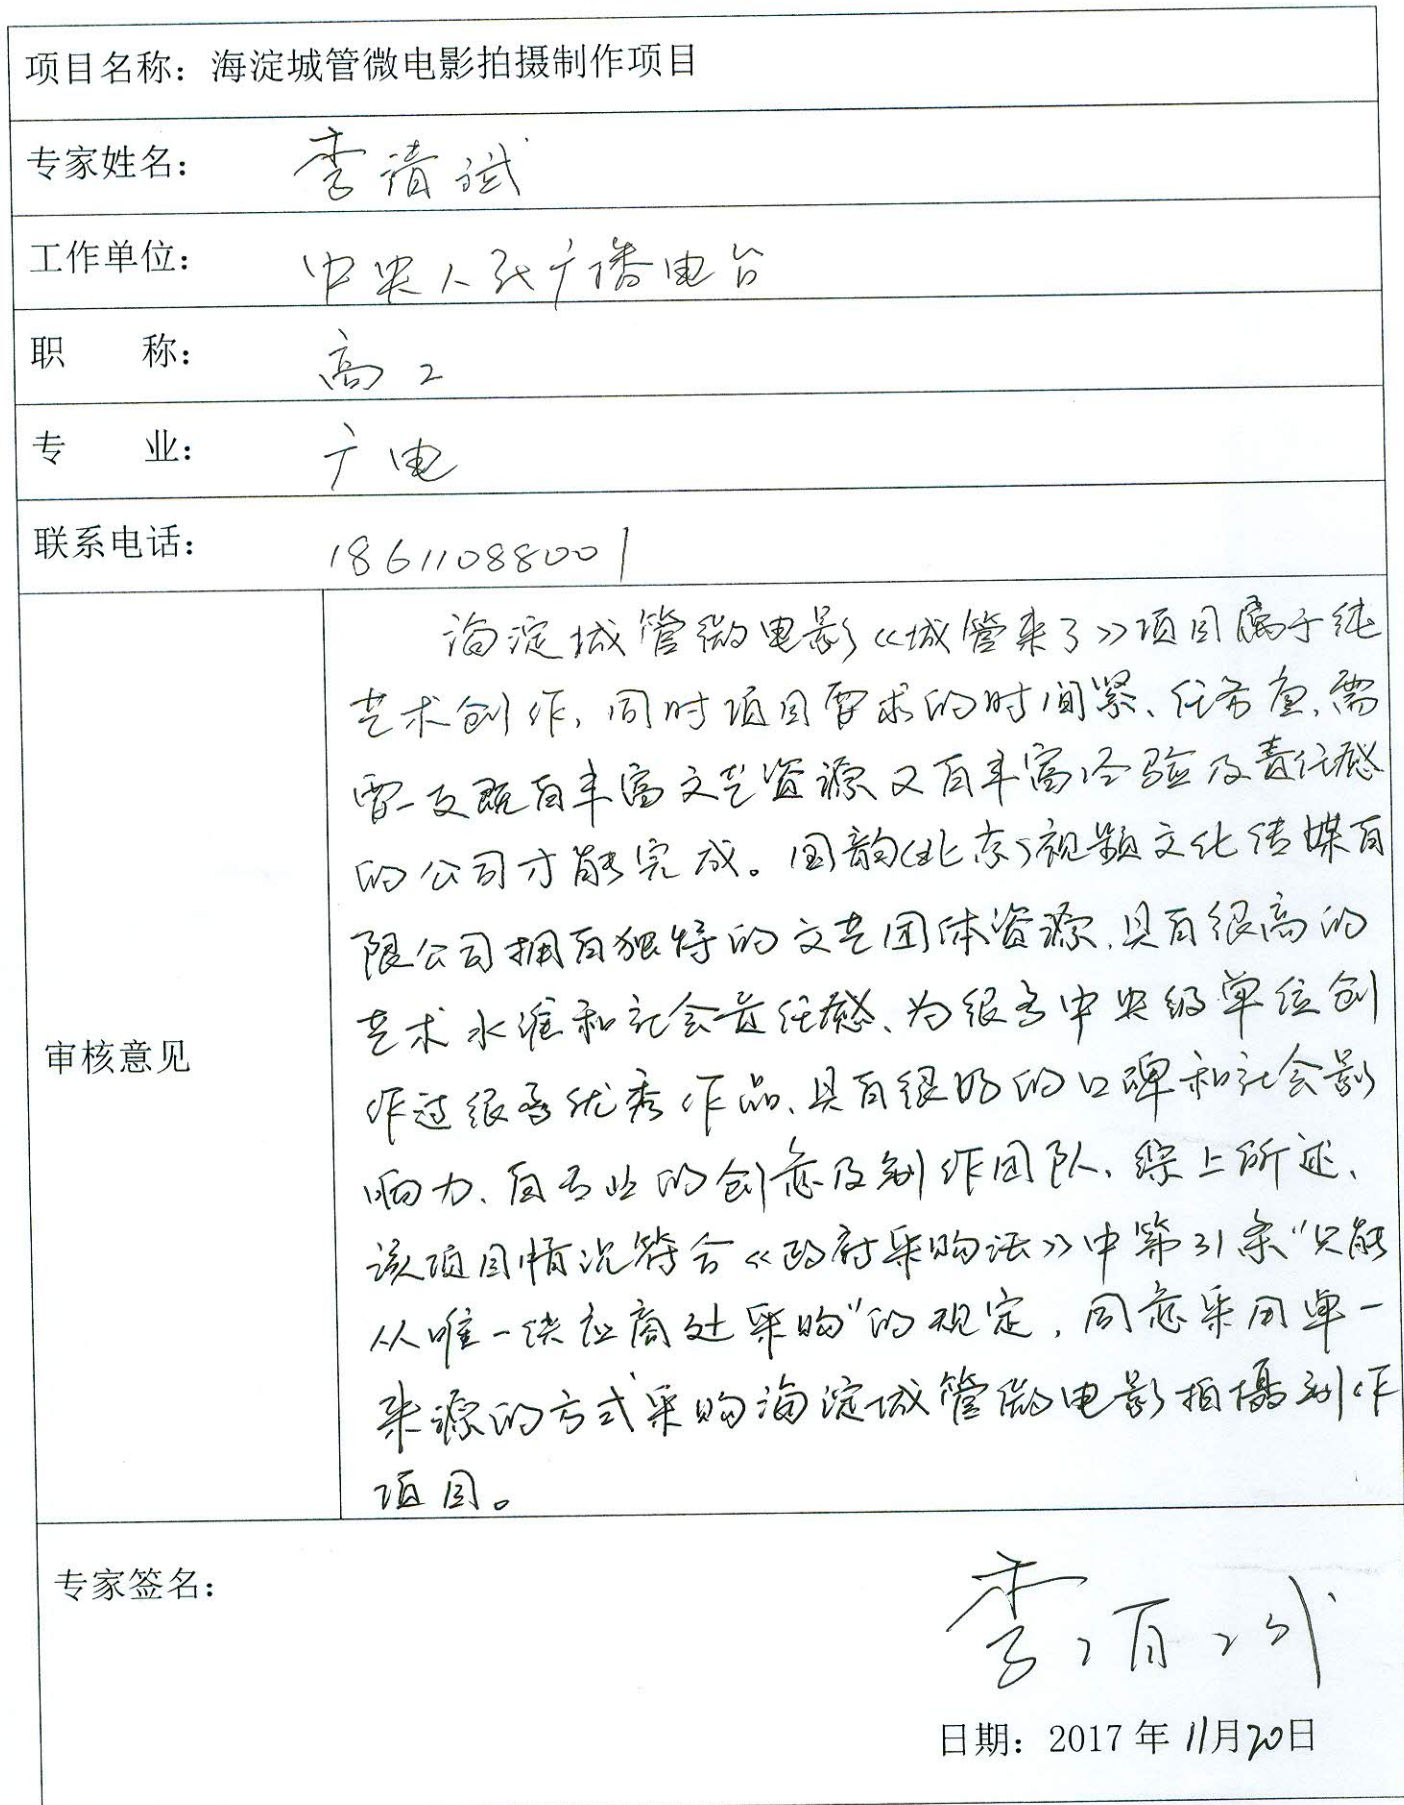 项目名称：海淀城管微电影拍摄制作项目
专家姓名： 李清斌
工作单位： 中央人民广播电台
职 称： 高工
专 业： 广电
联系电话： 18611088001
海淀城管微电影《城管来了》项目属于纯
艺术创作，同时项目要求的时间紧、任务重，需
要一支既有丰富文艺资源又有丰富经验及责任感
的公司才能完成。国韵（北京）视频文化传媒有
限公司拥有独特的文艺团体资源，具有很高的
艺术水准和社会责任感、为很多中央级单位创
作过很多优秀作品、具有很好的口碑和社会影
响力、有专业的创意及制作团队，综上所述、
审核意见
该项目情况符合《政府采购法》中第31条“只能
从唯一供应商处采购”的规定，同意采用单一
来源的方式采购海淀城管微电影拍摄制作
项目。
专家签名：
日期：2017年11月20日